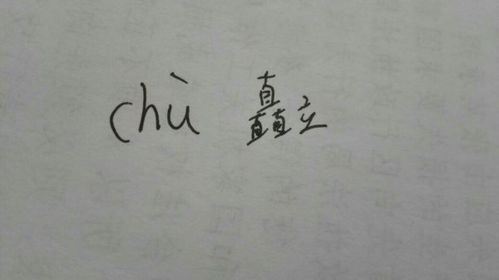 chù 矗立